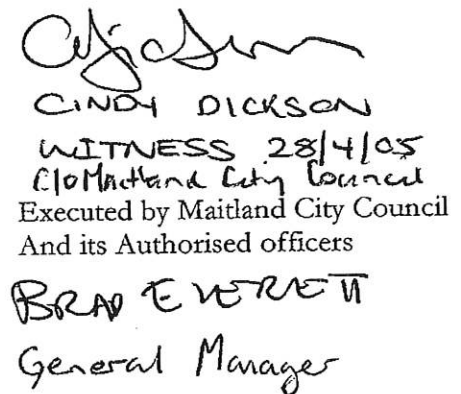 CINDY DICKSON
WITNESS 28/4/05
C/O Maitland City Council
Executed by Maitland City Council
And its Authorised officers
BRAD EVERETT
General Manager